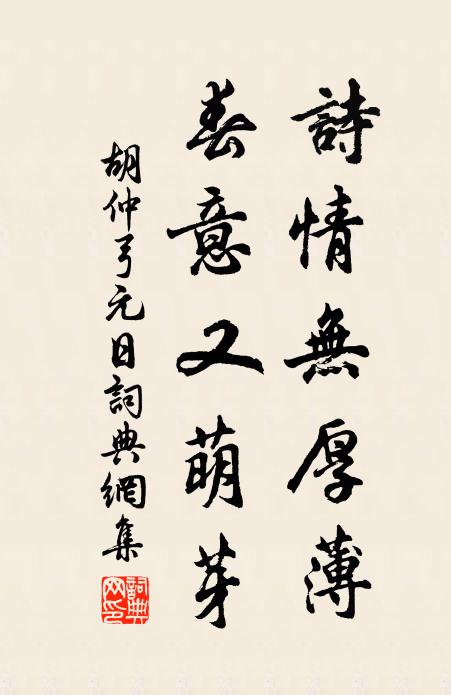 詩情無厚薄
春意又萌芽
胡仲弓元日詞典網集
詞典網印